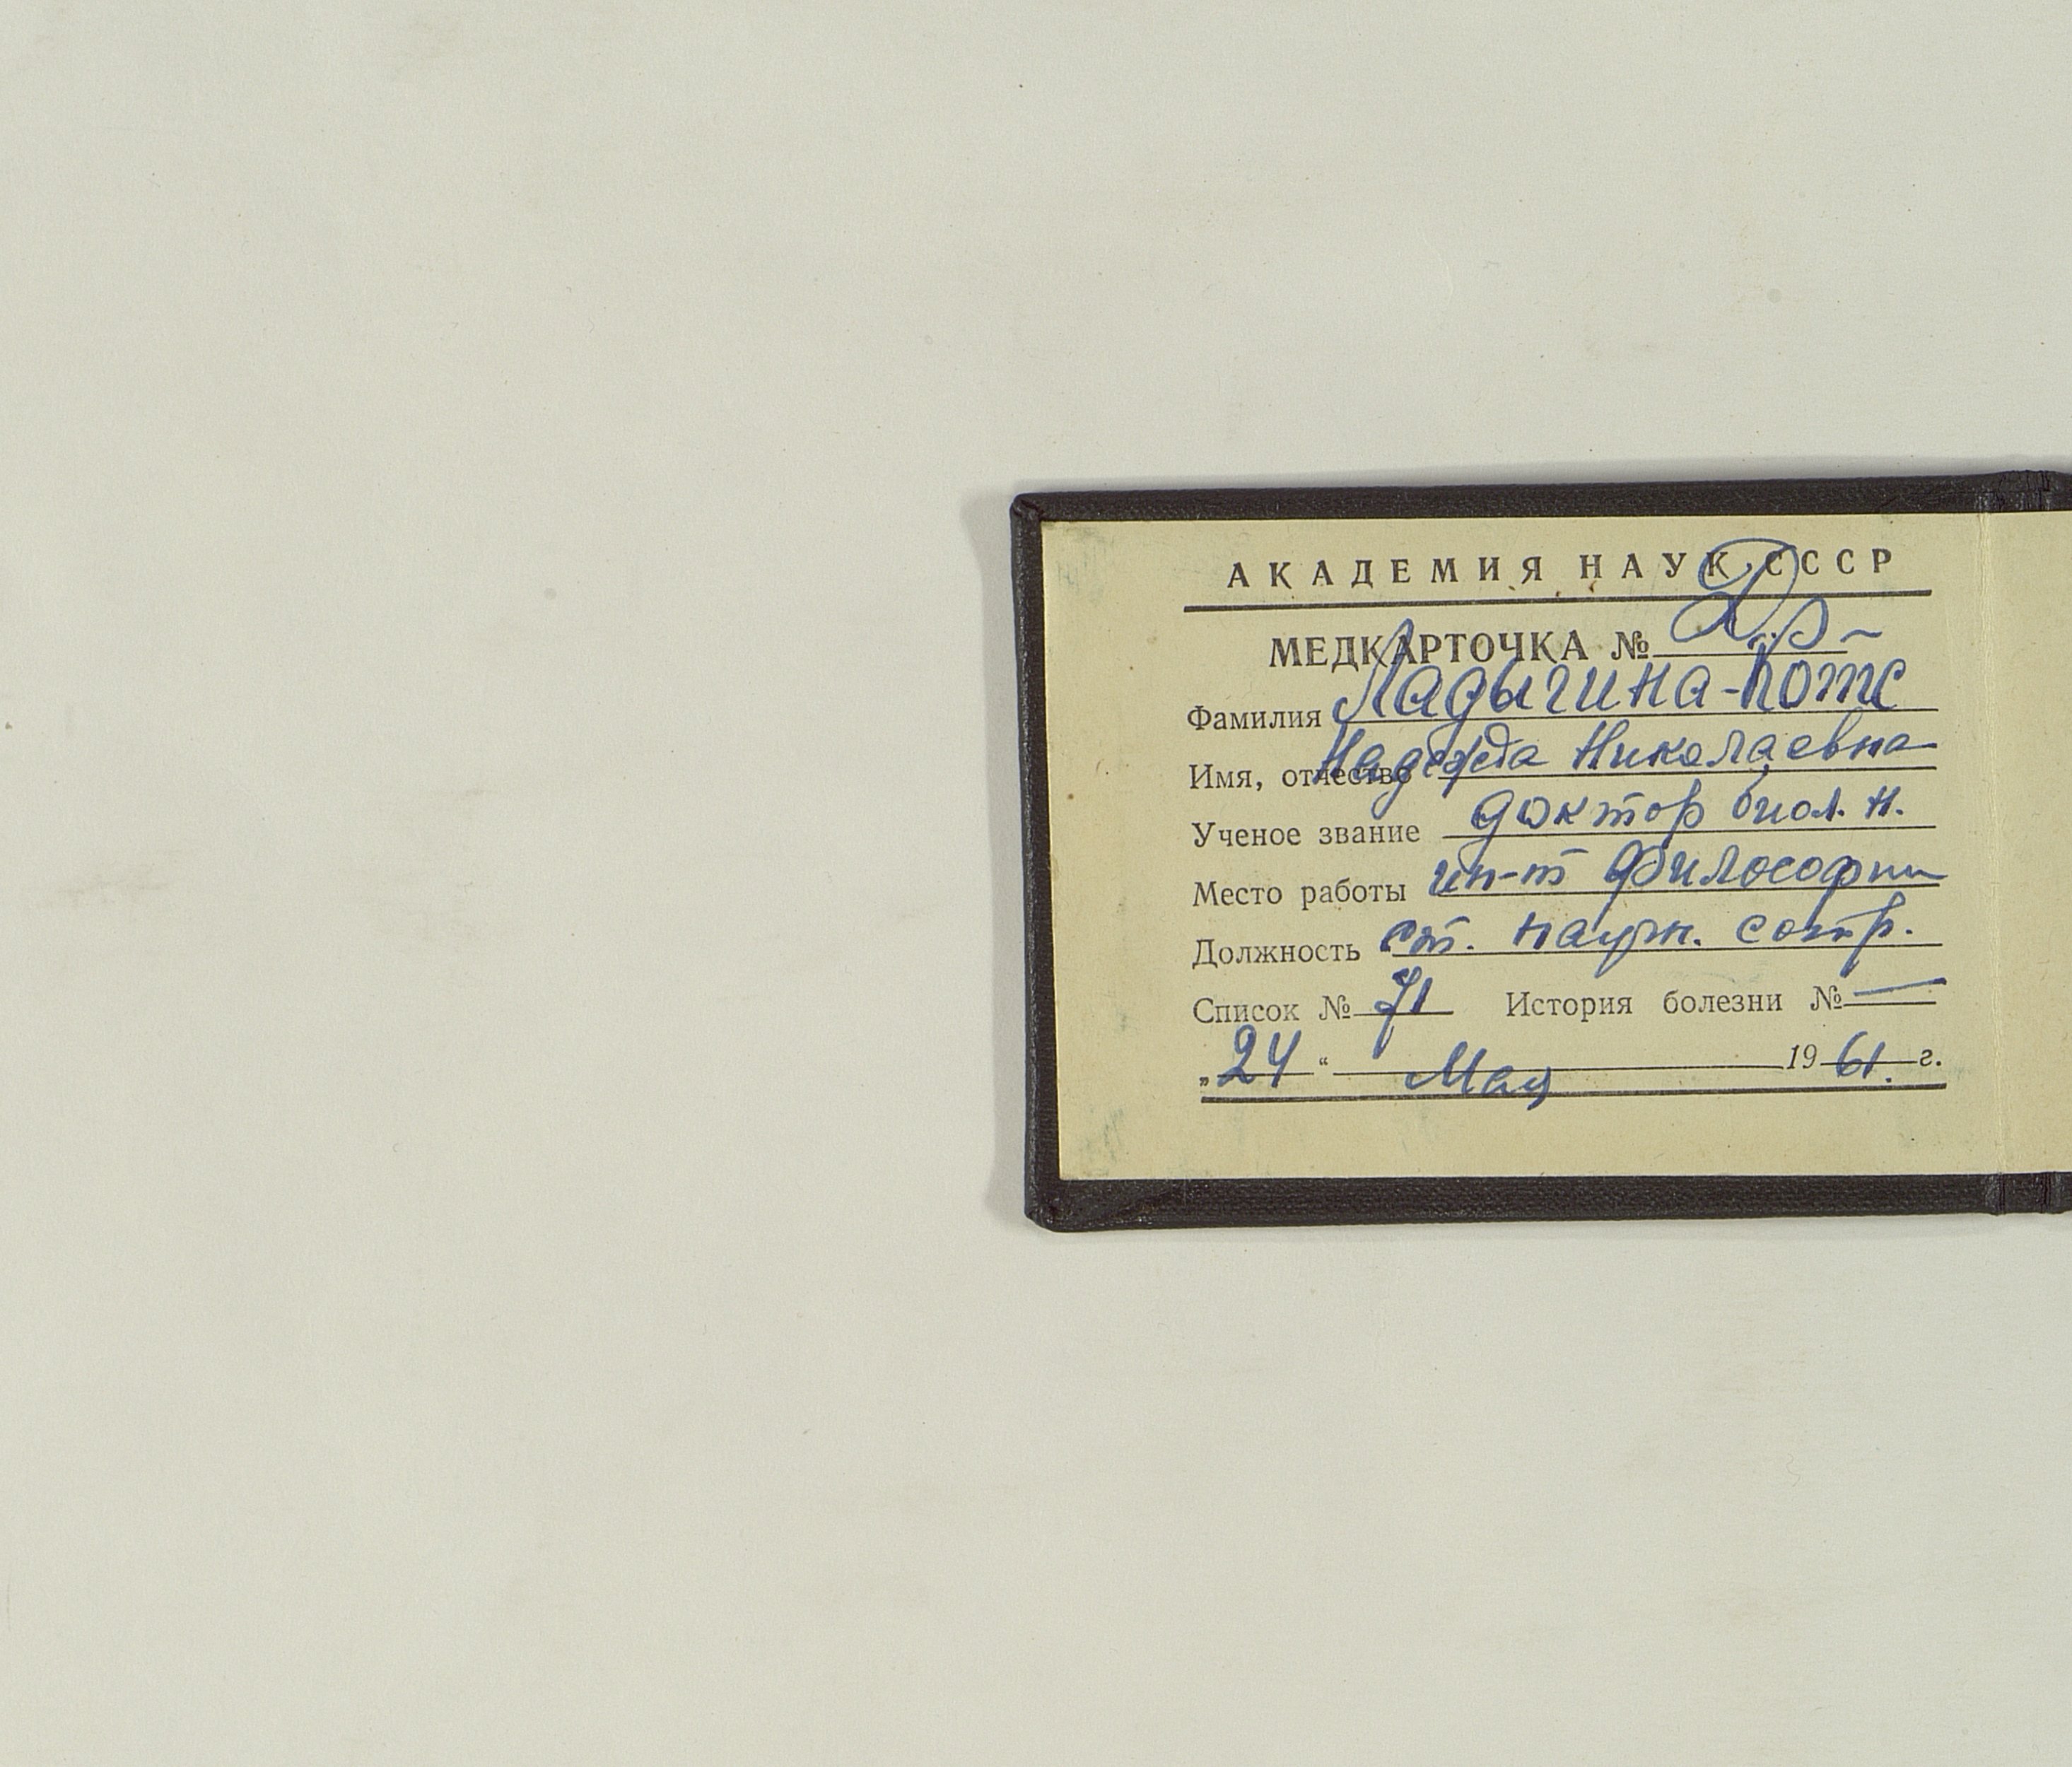 АКАДЕМИЯ НАУК СССР
МЕДКАРТОЧКА №
Фамилия Ладыгина-Котс
Имя, отчество Надежда Николаевна
Ученое звание доктор биол. н.
Место работы ин-т Философии
Должность ст. научн. сотр.
Список № 71 История болезни № —
„24“ Мая 1961. г.